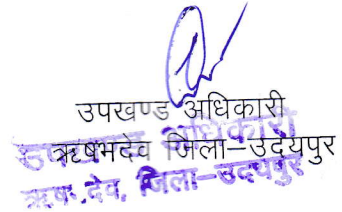 उपखण्ड अधिकारी
ऋषभदेव जिला–उदयपुर
उपखण्ड अधिकारी
ऋषभदेव, जिला–उदयपुर